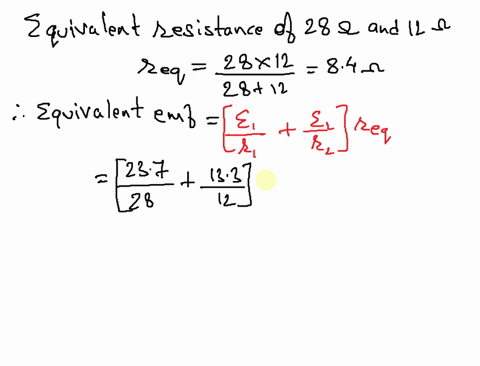 Equivalent resistance of 28 Ω and 12 Ω
req = 28×12 / 28+12 = 8.4 Ω
∴ Equivalent emf = [ε₁/r₁ + ε₁/r₂] req
= [23.7/28 + 13.3/12]